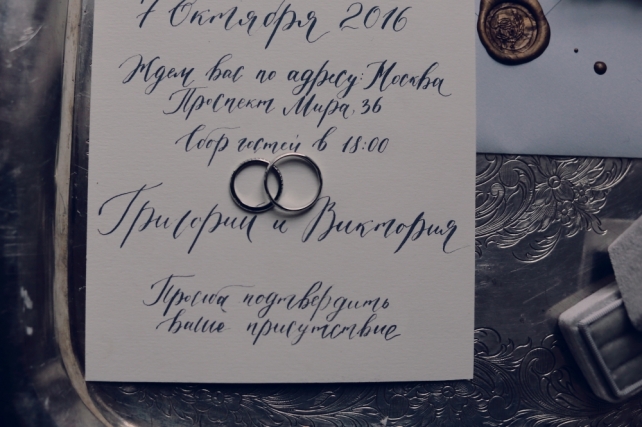 7 Октября 2016
Ждем вас по адресу: Москва
Проспект Мира, 36
Сбор гостей в 18:00
Григорий и Виктория
Просьба подтвердить
ваше присутствие